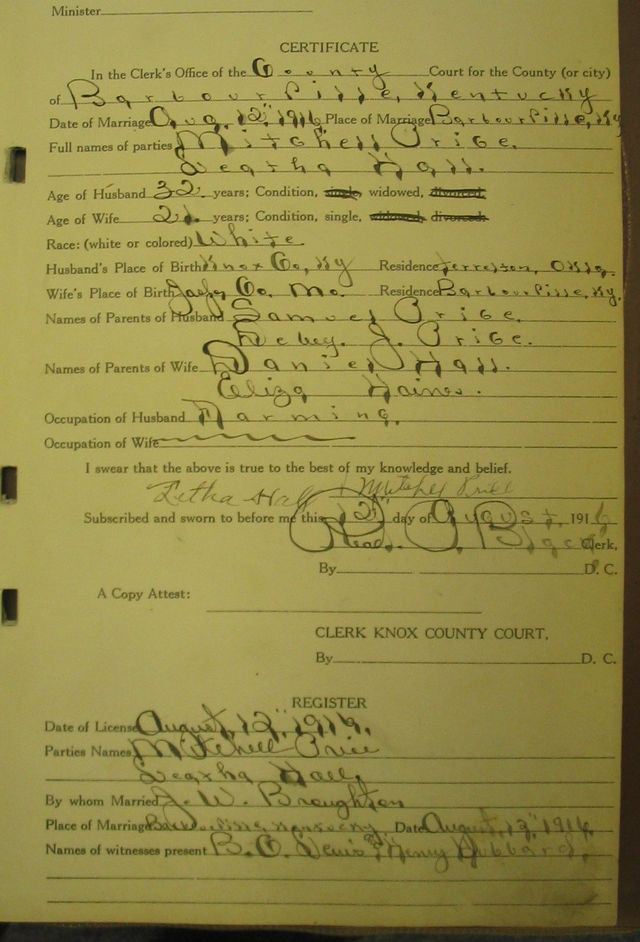 Minister
CERTIFICATE
In the Clerk's Office of the County Court for the County (or city)
of Barbourville, Kentucky
Date of Marriage Aug. 12" 1916 Place of Marriage Barbourville, Ky
Full names of parties Mitchell Price.
Leatha Hall.
Age of Husband 32 years; Condition, single, widowed, divorced
Age of Wife 21 years; Condition, single, widowed divorced
Race: (white or colored) White
Husband's Place of Birth Knox Co, Ky Residence Okla.
Wife's Place of Birth Co. Mo. Residence Barbourville, Ky.
Names of Parents of Husband Samuel Price.
J. Price.
Names of Parents of Wife Daniel Hall.
Eliza Haines.
Occupation of Husband Farming.
Occupation of Wife
I swear that the above is true to the best of my knowledge and belief.
Letha Hall Mitchell Price
Subscribed and sworn to before me this 12" day of August, 1916
Read. P. Clerk,
By D. C.
A Copy Attest:
CLERK KNOX COUNTY COURT,
By D. C.
REGISTER
Date of License August, 12", 1916.
Parties Names Mitchell Price
Leatha Hall,
By whom Married J. W. Broughton
Place of Marriage Date August, 12", 1916.
Names of witnesses present B. C. Lewis & Henry Hubbard,